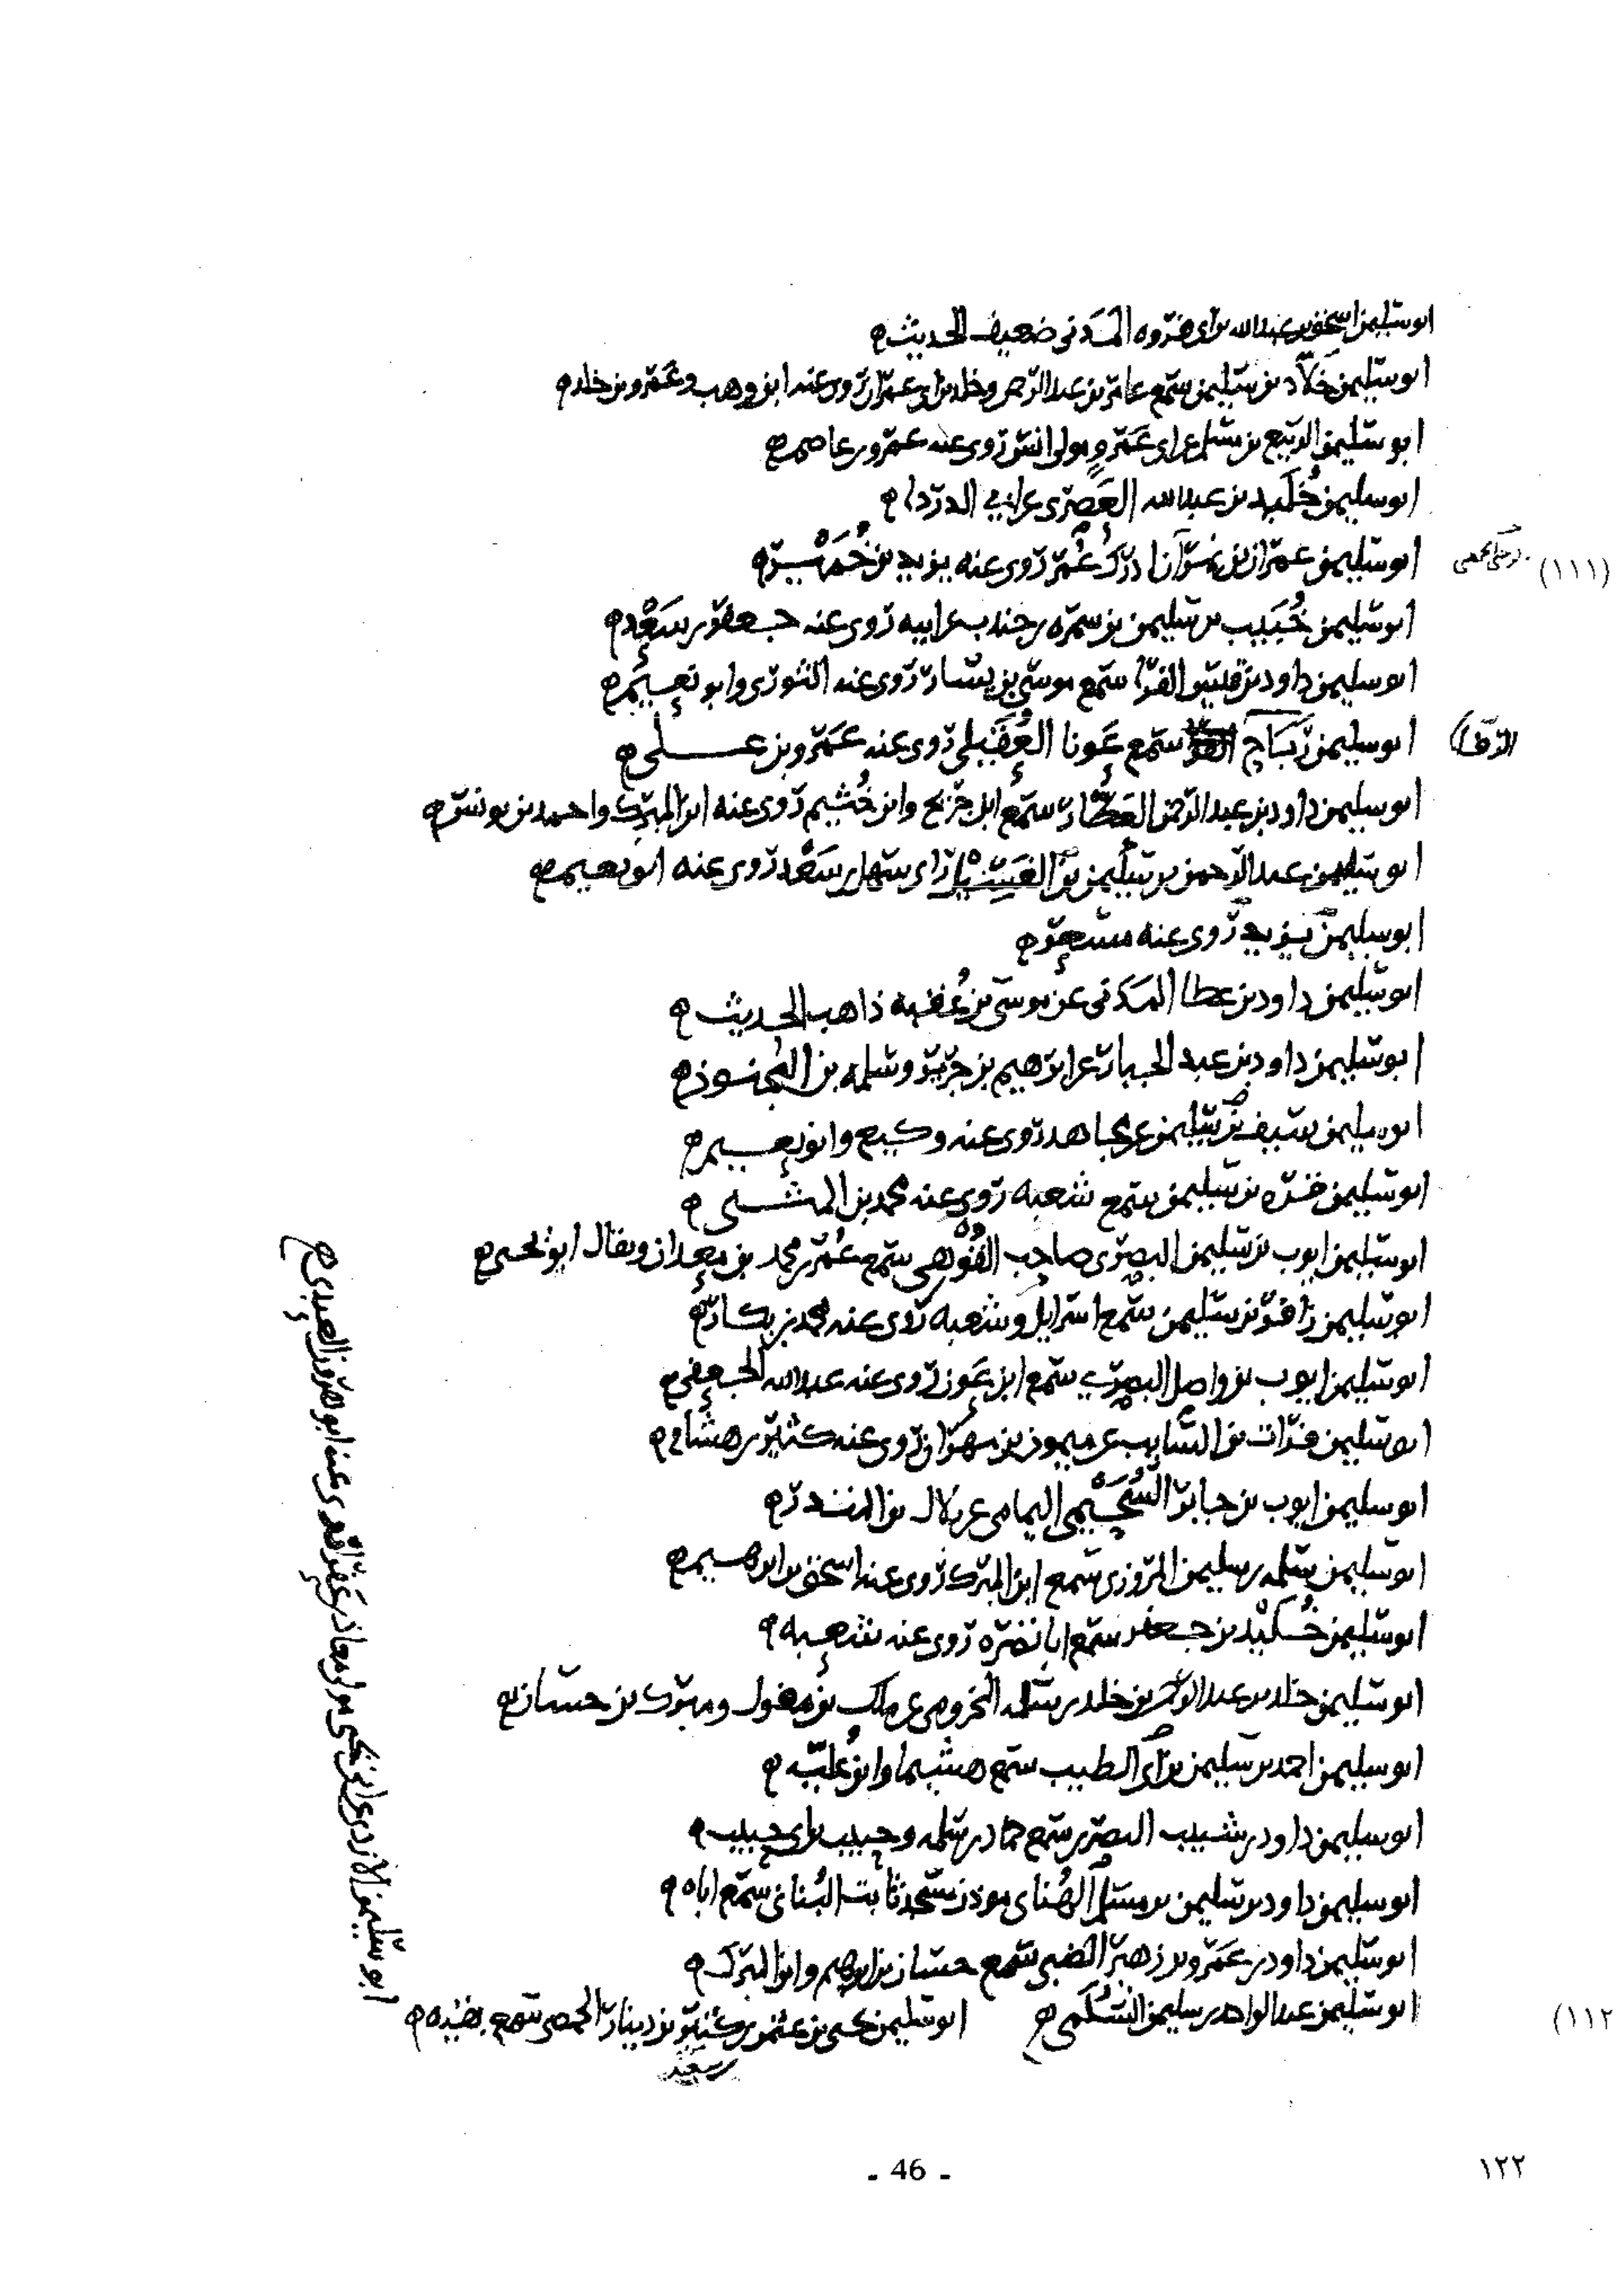 ابو سليمن اسحق بن عبد الله بن ابى فروه المدنى ضعيف الحديث ه
ابو سليمن خلاد بن سليمن سمع عامر بن عبد الرحمن وخلد بن ابى عمران روى عنه ابن وهب وعمرو بن خلد ه
ابو سليمن الربيع بن مسلم عن ابى عمرو مولى انس روى عنه عمرو بن عاصم ه
ابو سليمن خليد بن عبد الله العصرى عن ابي الدردا ه
ابو سليمن عمران بن ادرك عمر روى عنه يزيد بن خمير ه
(١١١)
ابو سليمن خبيب بن سليمن بن سمره بن جندب عن ابيه روى عنه جعفر بن سعد ه
ابو سليمن داود بن قيس الفرا سمع موسى بن يسار روى عنه الثورى وابو نعيم ه
ابو سليمن رباح سمع عونا العقيلى روى عنه عمرو بن على ه
ابو سليمن داود بن عبد الرحمن العطار سمع ابن جريج وابن خثيم روى عنه ابن المبرك واحمد بن يونس ه
ابو سليمن عبد الرحمن بن سليمن بن الغسيل راى سهل بن سعد روى عنه ابو نعيم ه
ابو سليمن يزيد روى عنه مسعر ه
ابو سليمن داود بن عطا المدنى عن موسى بن عقبه ذاهب الحديث ه
ابو سليمن داود بن عبد الجبار عن ابرهيم بن جرير وسلمه بن المجنون ه
ابو سليمن سيف بن سليمن عن مجاهد روى عنه وكيع وابو نعيم ه
ابو سليمن قره بن سليمن سمع شعبه روى عنه محمد بن المثنى ه
ابو سليمن ايوب بن سليمن البصرى صاحب القوهى سمع عمر بن محمد بن معدان ويقال ابو الحسن ه
ابو سليمن زافر بن سليمن سمع اسرايل وشعبه روى عنه محمد بن بكار ه
ابو سليمن ايوب بن واصل البصري سمع ابن عون روى عنه عبد الله الجعفى ه
ابو سليمن فرات بن السايب عن ميمون بن مهران روى عنه كثير بن هشام ه
ابو سليمن ايوب بن جابر السحيمى اليمامى عن بلال بن المنذر ه
ابو سليمن سلمه بن سليمن المروزى سمع ابن المبرك روى عنه اسحق بن ابرهيم ه
ابو سليمن خليد بن جعفر سمع ابا نضره روى عنه شعبه ه
ابو سليمن خلد بن عبد الرحمن بن خلد بن سلمه المخزومى عن ملك بن مغول ومبرك بن حسان ه
ابو سليمن احمد بن سليمن بن ابى الطيب سمع هشيما وابن عليه ه
ابو سليمن داود بن شبيب البصرى سمع حماد بن سلمه وحبيب بن ابى حبيب ه
ابو سليمن داود بن سليمن بن مسلم الهنای موذن مسجد ثابت البنانى سمع اباه ه
ابو سليمن داود بن عمرو بن زهير الضبى سمع حسان بن ابرهيم وابن المبرك ه
ابو سليمن عبد الواحد بن سليمن السلمى ه ابو سليمن يحيى بن عثمن بن كثير بن دينار الحمصى سمع بقيه ه
سعيد
(١١٢
ابو سليمن الازدى عن ابى يحيى مولى معاذ بن عفرا روى عنه ابو هرون العبدى ه
- 46 -
١٢٢